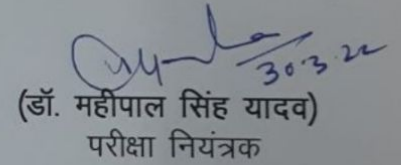 30.3.22
(डॉ. महीपाल सिंह यादव)
परीक्षा नियंत्रक